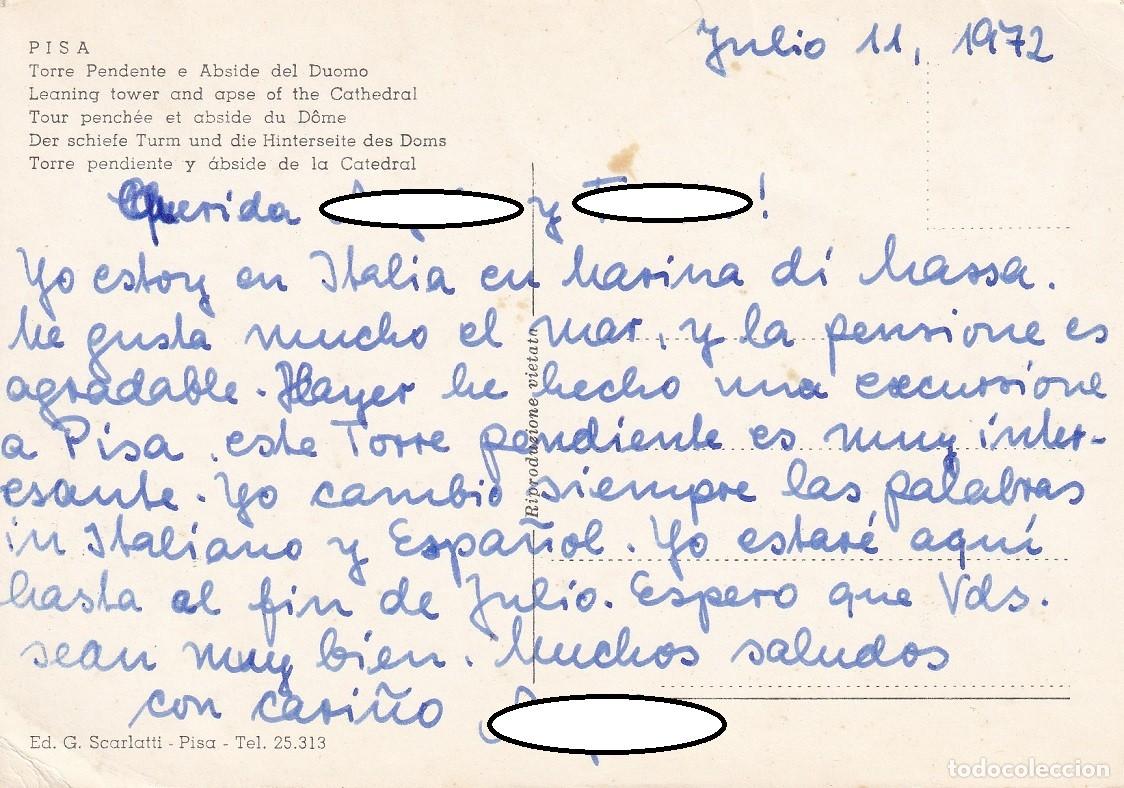 PISA
Torre Pendente e Abside del Duomo
Leaning tower and apse of the Cathedral
Tour penchée et abside du Dôme
Der schiefe Turm und die Hinterseite des Doms
Torre pendiente y ábside de la Catedral
Julio 11, 1972
Querida y !
Yo estoy en Italia en Marina di Massa.
Me gusta mucho el mar, y la pensione es
agradable. Hayer he hecho una excursione
a Pisa, este Torre pendiente es muy inter-
esante. Yo cambio siempre las palabras
in Italiano y Español. Yo estaré aquí
hasta al fin de Julio. Espero que Vds.
sean muy bien. Muchos saludos
con cariño
Riproduzione vietata
Ed. G. Scarlatti - Pisa - Tel. 25.313
todocoleccion